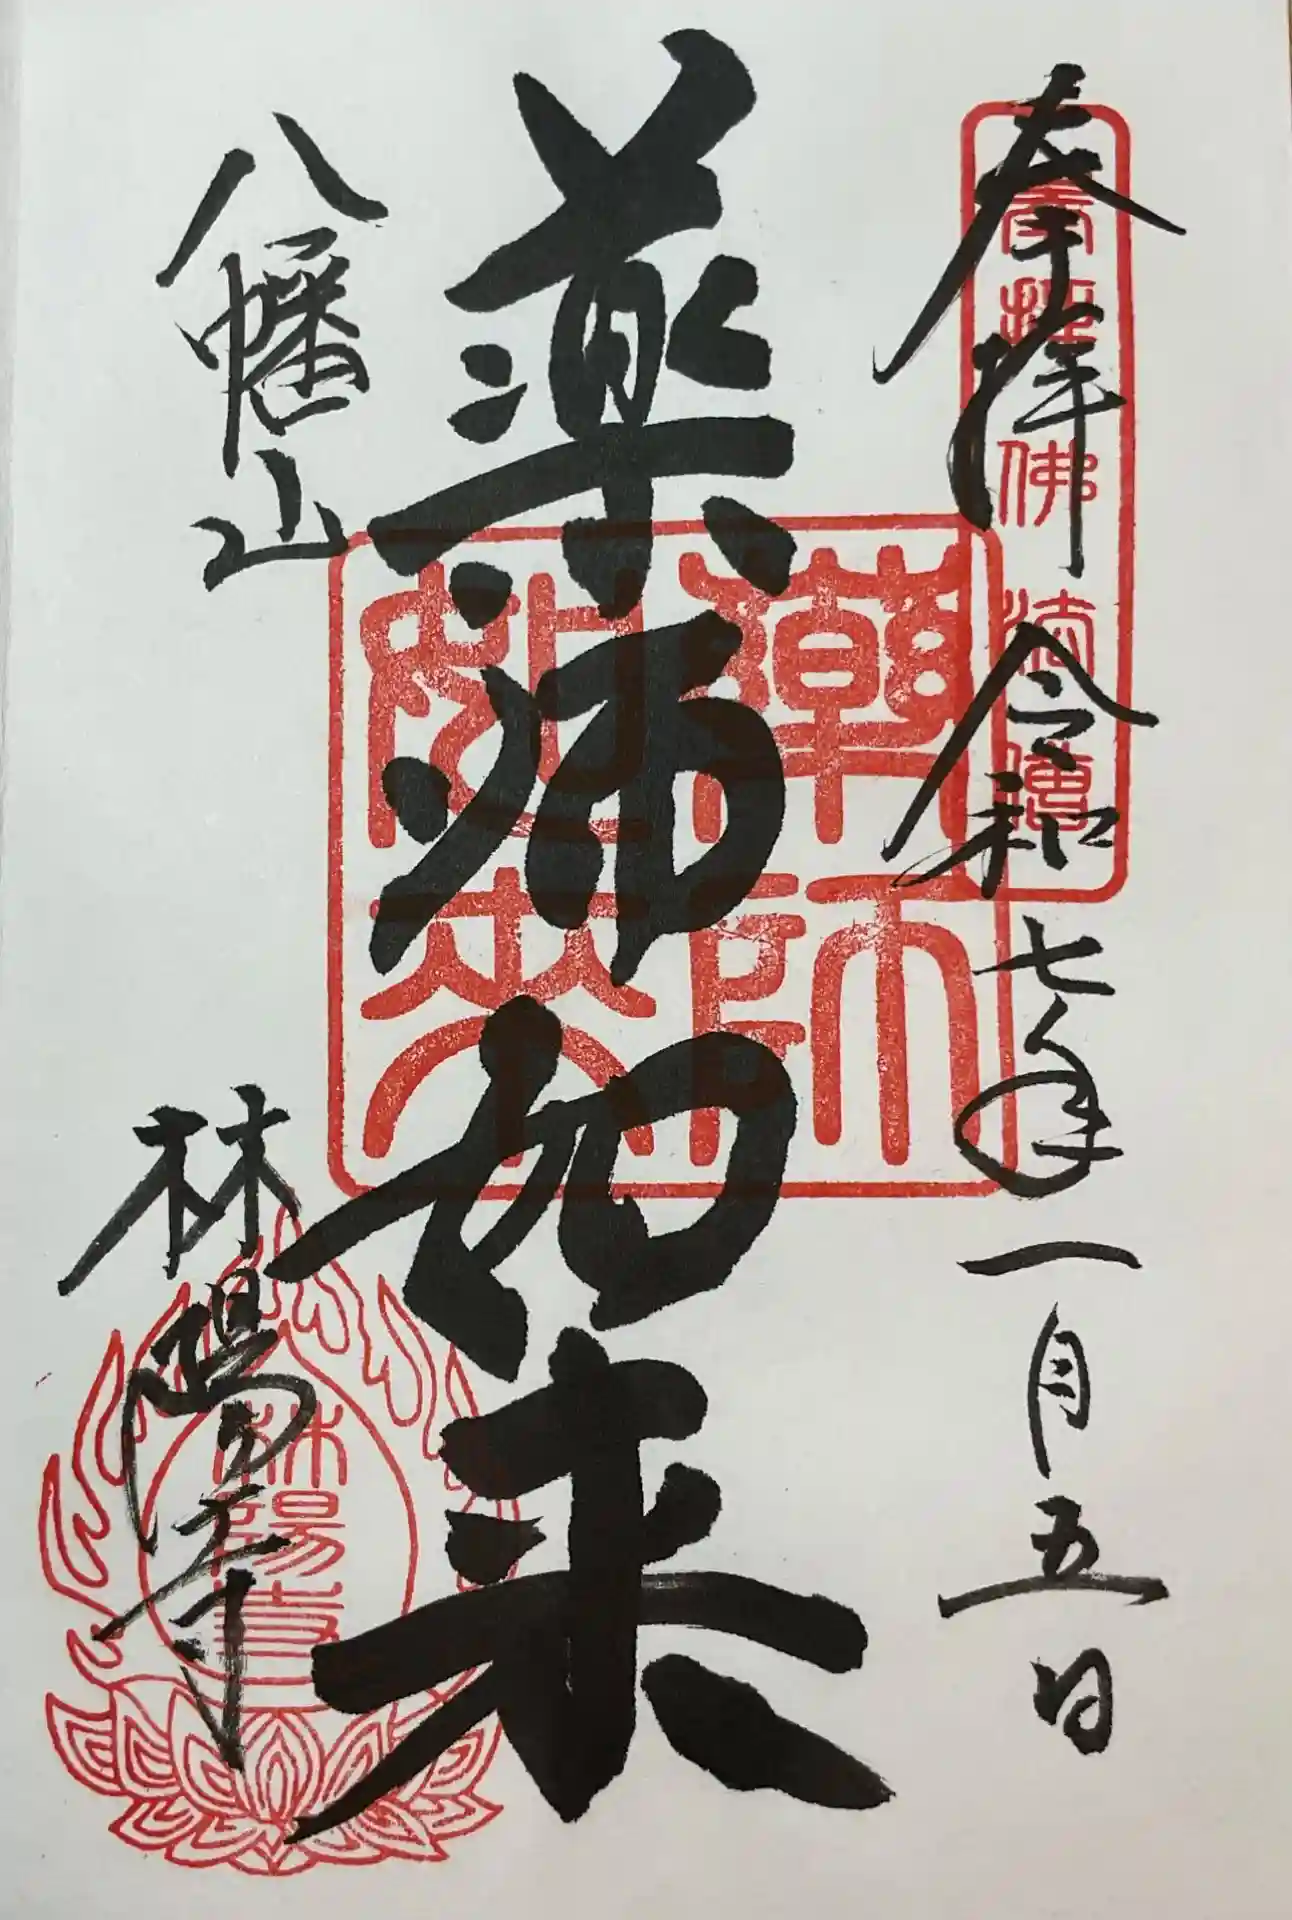 奉拝 令和七年一月五日
奉拝佛法僧
薬師如来
藥師如来
八幡山
林陽寺
林陽寺